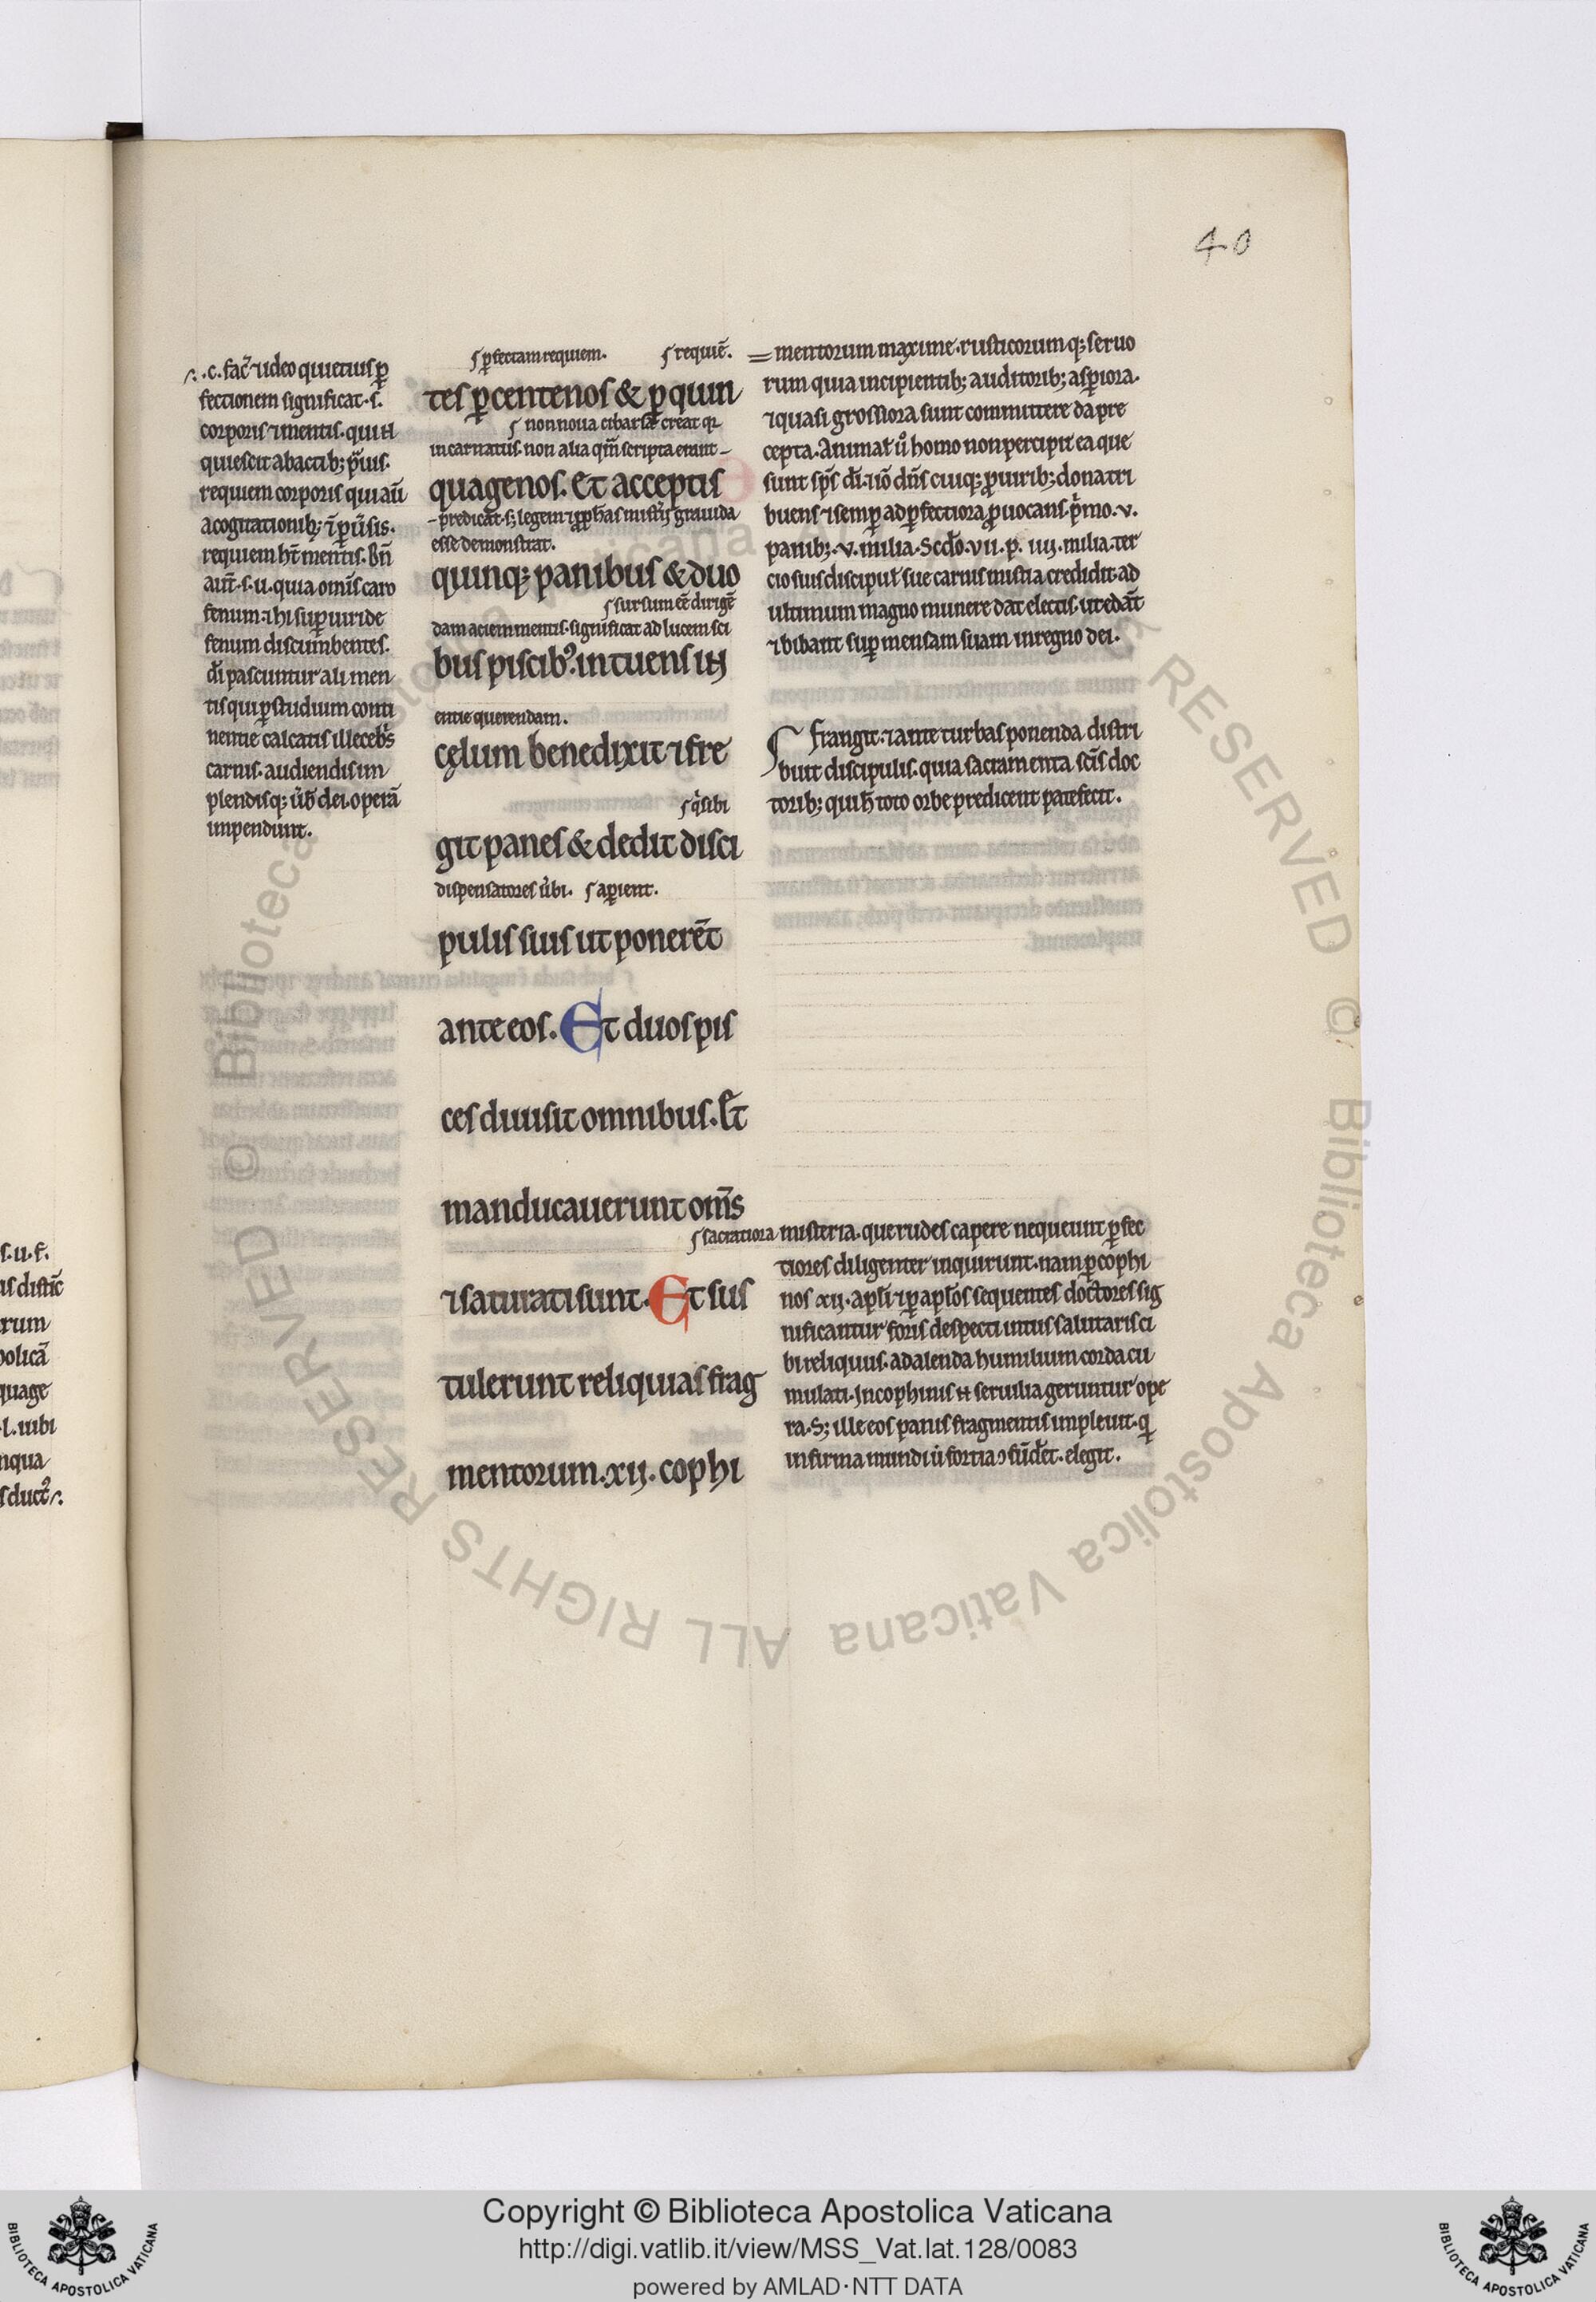 40
.c. fac̄ ⁊ ideo quietius ꝑ
fectionem significat. s.
corporis ⁊ mentis. qui .n.
quiescit ab actib; p̄uis.
requiem corporis qui aū
a cogitationib; ⁊ ꝑuersis.
requiem hт̄ mentis. Bn̄
aut̄. s. u. quia omīs caro
fenum. ⁊ hi sup̱ uiride
fenum discumbentes.
di pascuntur alimen
tis qui ꝑ studium conti
nentie calcatis illecebris
carnis. audiendis im
plendisq; ub̄ dei. operā
impendunt.
ꝑfectam requiem. requiē.
tes ꝑ centenos & ꝑ quin
non noua cibaria creat qr
incarnatus. non alia qm̄ scripta erant
quagenos. Et acceptis
predicat. s; legem ⁊ ꝓph̄as mistiis grauida
esse demonstrat.
quinq; panibus & duo
sursum eē dirigē
dam aciem mentis. significat ad lucem sci
bus piscib9. intuens in
entie querendam.
cęlum benedixit ⁊ fre
q̇ sibi
git panes & dedit disci
dispensatores ubi. aꝑient.
pulis suis ut ponerēt
ante eos. Et duos pis
ces diuisit omnibus. Et
manducauerunt om̄s
⁊ saturati sunt. Et sus
tulerunt reliquias frag
mentorum. xii. cophi
mentorum maxime. rusticorum q; seruo
rum quia incipientib; auditorib; asꝑiora.
⁊ quasi grossiora sunt committere da pre
cepta. Animal u° homo non percipit ea que
sunt sp̄s di. iō dn̄s cuiq; ꝓ uirib; dona tri
buens ⁊ semꝑ ad ꝑfectiora ꝓuocans. p̄mo .v.
panib; .v. milia. Scdo .vii. p. iiii. milia. ter
cio suis discipul̄ sue carnis mistia credidit. ad
ultimum magno munere dat electis. ut edāt
⁊ bibant sup̱ mensam suam in regno dei.
frangit. ⁊ ante turbas ponenda distri
buit discipulis. quia sacramenta sc̄is doc
torib; qui h̄ toto orbe predicent patefecit.
sacratiora misteria. que rudes capere nequeunt ꝑfec
tiores diligenter inquirunt. nam ꝑ cophi
nos xii. apl̄i ⁊ ꝑ apl̄os sequentes doctores sig
nificantur foris despecti intus salutaris ci
bi reliquiis. ad alenda humilium corda cu
mulati. In cophinis .n. seruilia geruntur ope
ra. S; ille eos panis fragmentis impleuit. q̇
infirma mundi ut fortia ↄfūdet. elegit.
s. u. f.
is distīc
rum
olicā
quage
l. uibi
nqua
s duct9
Copyright © Biblioteca Apostolica Vaticana
http://digi.vatlib.it/view/MSS_Vat.lat.128/0083
powered by AMLAD·NTT DATA